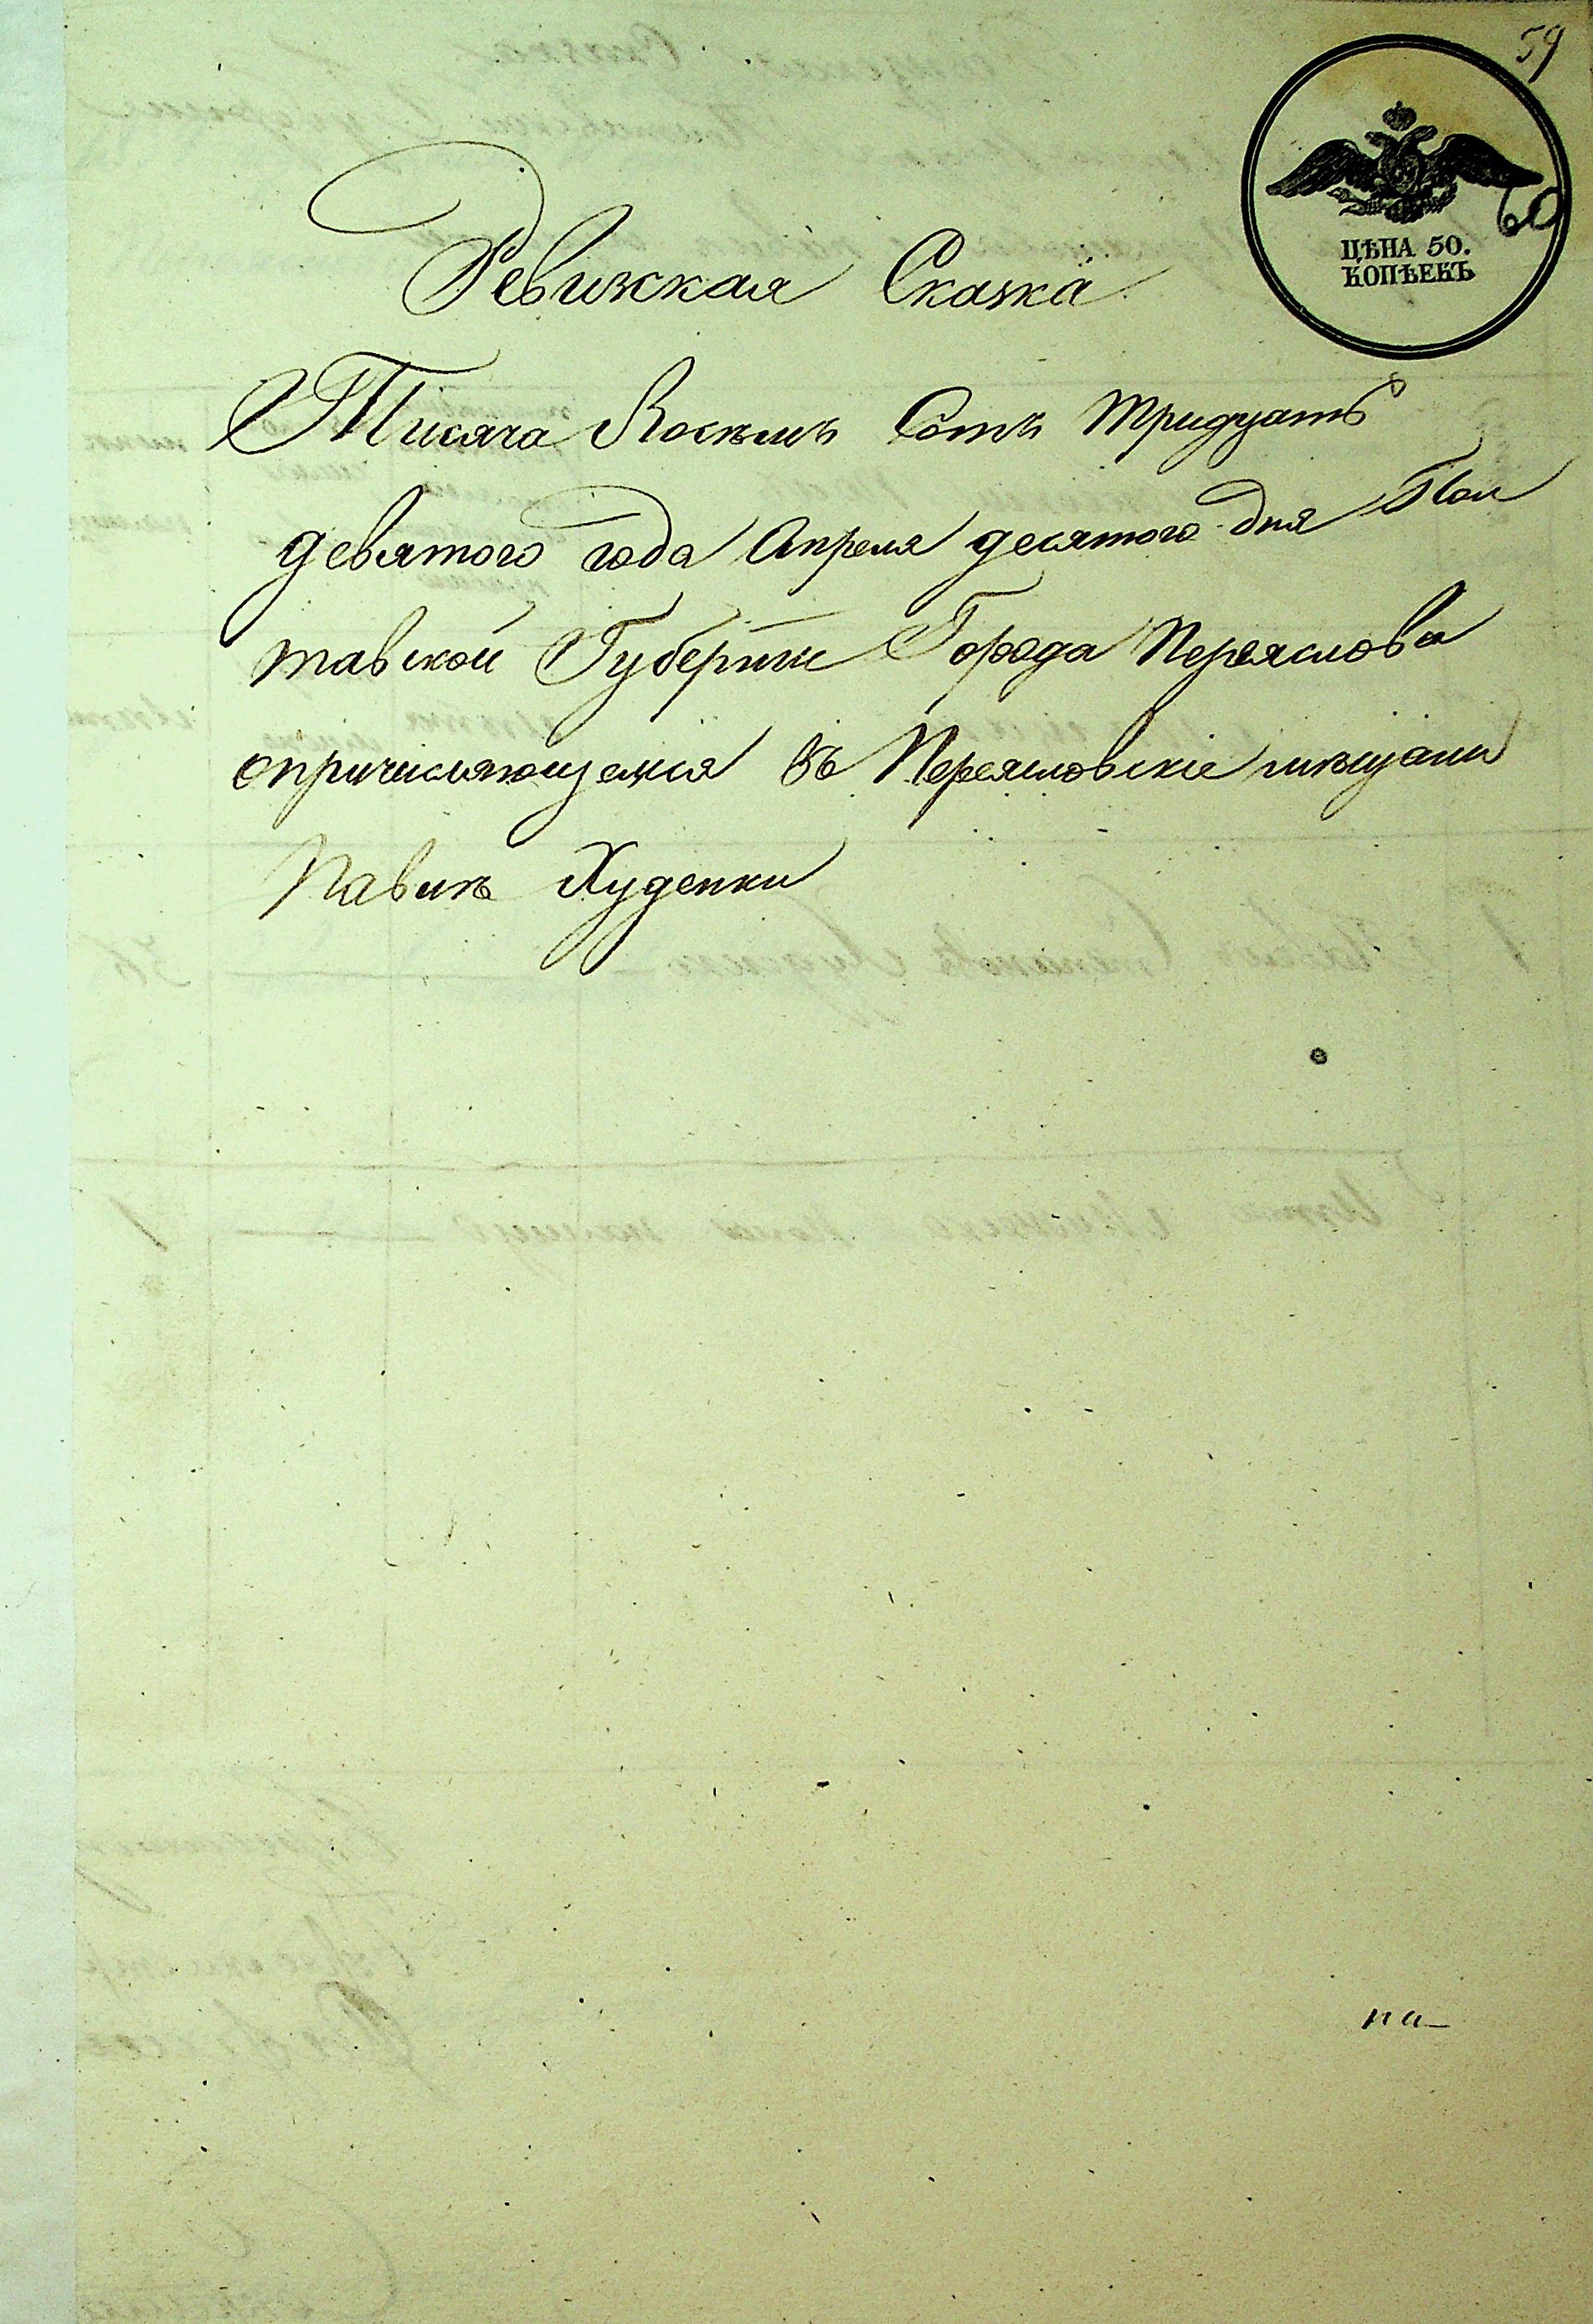 59
60
ЦѢНА 50.
КОПѢЕКЪ
Ревижская Сказка
Тисяча Восемъ Сотъ тридцать
девятого года Апреля десятого дня Пол
тавской Губернии Города Переяслова
опричисляющемся въ Переясловские мещани
Павле Худенки
на